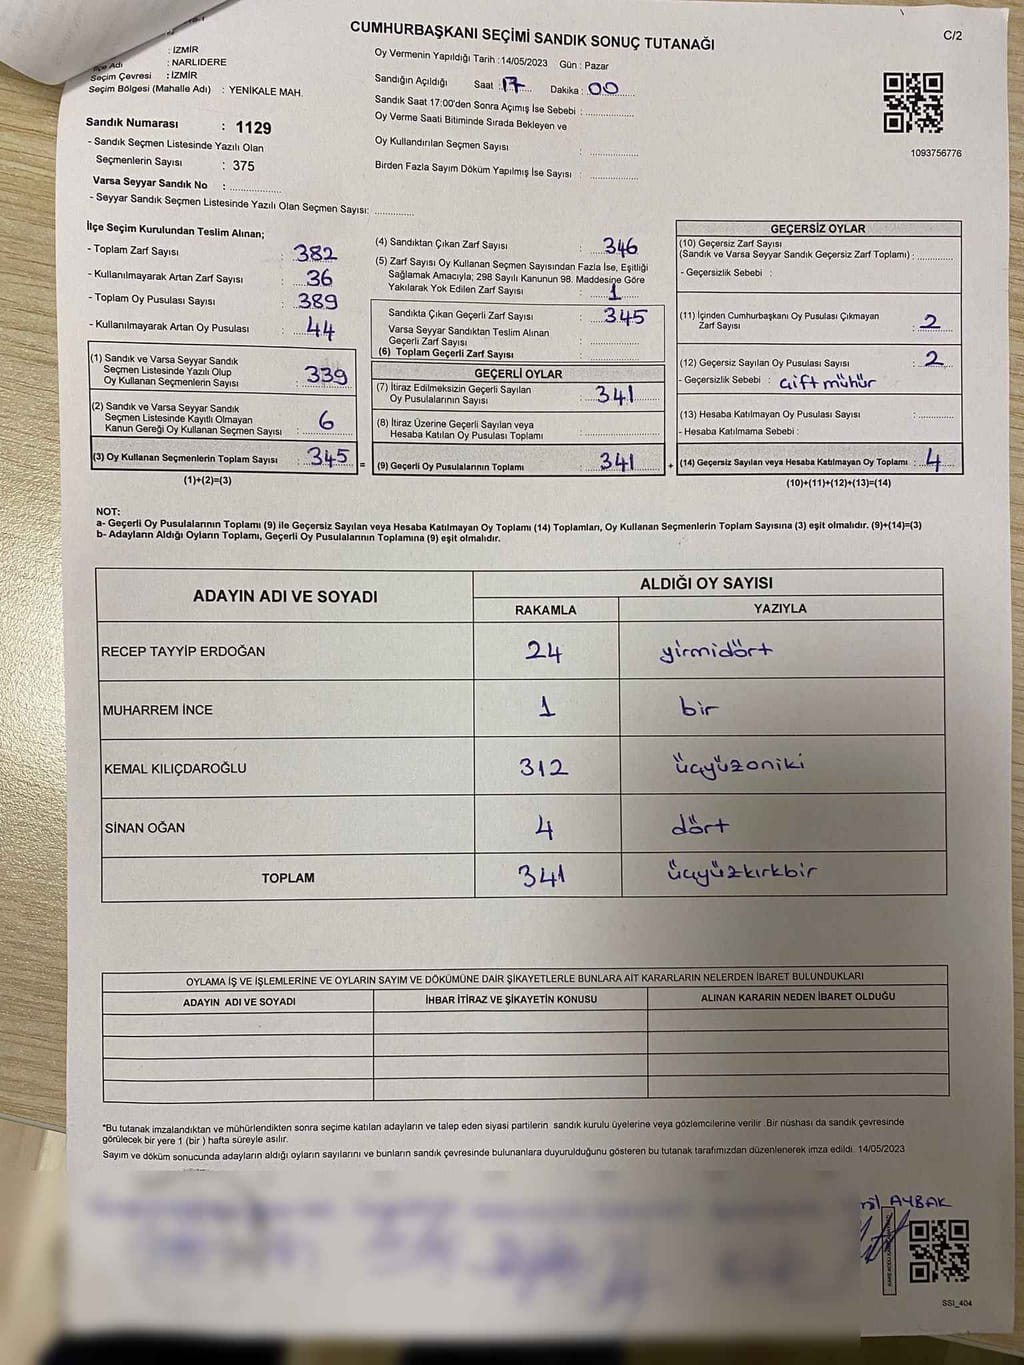 CUMHURBAŞKANI SEÇİMİ SANDIK SONUÇ TUTANAĞI
C/2
: İZMİR
İlçe Adı : NARLIDERE
Seçim Çevresi : İZMİR
Seçim Bölgesi (Mahalle Adı) : YENİKALE MAH.
Sandık Numarası : 1129
- Sandık Seçmen Listesinde Yazılı Olan
Seçmenlerin Sayısı : 375
Varsa Seyyar Sandık No :
- Seyyar Sandık Seçmen Listesinde Yazılı Olan Seçmen Sayısı:
Oy Vermenin Yapıldığı Tarih : 14/05/2023 Gün : Pazar
Sandığın Açıldığı Saat : 17 Dakika : 00
Sandık Saat 17:00'den Sonra Açımış İse Sebebi :
Oy Verme Saati Bitiminde Sırada Bekleyen ve
Oy Kullandırılan Seçmen Sayısı :
Birden Fazla Sayım Döküm Yapılmış İse Sayısı :
1093756776
İlçe Seçim Kurulundan Teslim Alınan;
- Toplam Zarf Sayısı : 382
- Kullanılmayarak Artan Zarf Sayısı : 36
- Toplam Oy Pusulası Sayısı : 389
- Kullanılmayarak Artan Oy Pusulası : 44
(1) Sandık ve Varsa Seyyar Sandık
Seçmen Listesinde Yazılı Olup
Oy Kullanan Seçmenlerin Sayısı : 339
(2) Sandık ve Varsa Seyyar Sandık
Seçmen Listesinde Kayıtlı Olmayan
Kanun Gereği Oy Kullanan Seçmen Sayısı : 6
(3) Oy Kullanan Seçmenlerin Toplam Sayısı : 345 =
(1)+(2)=(3)
(4) Sandıktan Çıkan Zarf Sayısı : 346
(5) Zarf Sayısı Oy Kullanan Seçmen Sayısından Fazla İse, Eşitliği
Sağlamak Amacıyla; 298 Sayılı Kanunun 98. Maddesine Göre
Yakılarak Yok Edilen Zarf Sayısı : 1
Sandıkta Çıkan Geçerli Zarf Sayısı : 345
Varsa Seyyar Sandıktan Teslim Alınan
Geçerli Zarf Sayısı :
(6) Toplam Geçerli Zarf Sayısı :
GEÇERLİ OYLAR
(7) İtiraz Edilmeksizin Geçerli Sayılan
Oy Pusulalarının Sayısı : 341
(8) İtiraz Üzerine Geçerli Sayılan veya
Hesaba Katılan Oy Pusulası Toplamı :
(9) Geçerli Oy Pusulalarının Toplamı : 341 +
GEÇERSİZ OYLAR
(10) Geçersiz Zarf Sayısı
(Sandık ve Varsa Seyyar Sandık Geçersiz Zarf Toplamı) :
- Geçersizlik Sebebi :
(11) İçinden Cumhurbaşkanı Oy Pusulası Çıkmayan
Zarf Sayısı : 2
(12) Geçersiz Sayılan Oy Pusulası Sayısı : 2
- Geçersizlik Sebebi : çift mühür
(13) Hesaba Katılmayan Oy Pusulası Sayısı :
- Hesaba Katılmama Sebebi :
(14) Geçersiz Sayılan veya Hesaba Katılmayan Oy Toplamı : 4
(10)+(11)+(12)+(13)=(14)
NOT:
a- Geçerli Oy Pusulalarının Toplamı (9) ile Geçersiz Sayılan veya Hesaba Katılmayan Oy Toplamı (14) Toplamları, Oy Kullanan Seçmenlerin Toplam Sayısına (3) eşit olmalıdır. (9)+(14)=(3)
b- Adayların Aldığı Oyların Toplamı, Geçerli Oy Pusulalarının Toplamına (9) eşit olmalıdır.
ADAYIN ADI VE SOYADI ALDIĞI OY SAYISI
RAKAMLA YAZIYLA
RECEP TAYYİP ERDOĞAN 24 yirmidört
MUHARREM İNCE 1 bir
KEMAL KILIÇDAROĞLU 312 üçyüzoniki
SİNAN OĞAN 4 dört
TOPLAM 341 üçyüzkırkbir
OYLAMA İŞ VE İŞLEMLERİNE VE OYLARIN SAYIM VE DÖKÜMÜNE DAİR ŞİKAYETLERLE BUNLARA AİT KARARLARIN NELERDEN İBARET BULUNDUKLARI
ADAYIN ADI VE SOYADI İHBAR İTİRAZ VE ŞİKAYETİN KONUSU ALINAN KARARIN NEDEN İBARET OLDUĞU
*Bu tutanak imzalandıktan ve mühürlendikten sonra seçime katılan adayların ve talep eden siyasi partilerin sandık kurulu üyelerine veya gözlemcilerine verilir .Bir nüshası da sandık çevresinde
görülecek bir yere 1 (bir ) hafta süreyle asılır.
Sayım ve döküm sonucunda adayların aldığı oyların sayılarını ve bunların sandık çevresinde bulunanlara duyurulduğunu gösteren bu tutanak tarafımızdan düzenlenerek imza edildi. 14/05/2023
AYBAK
SSI_404